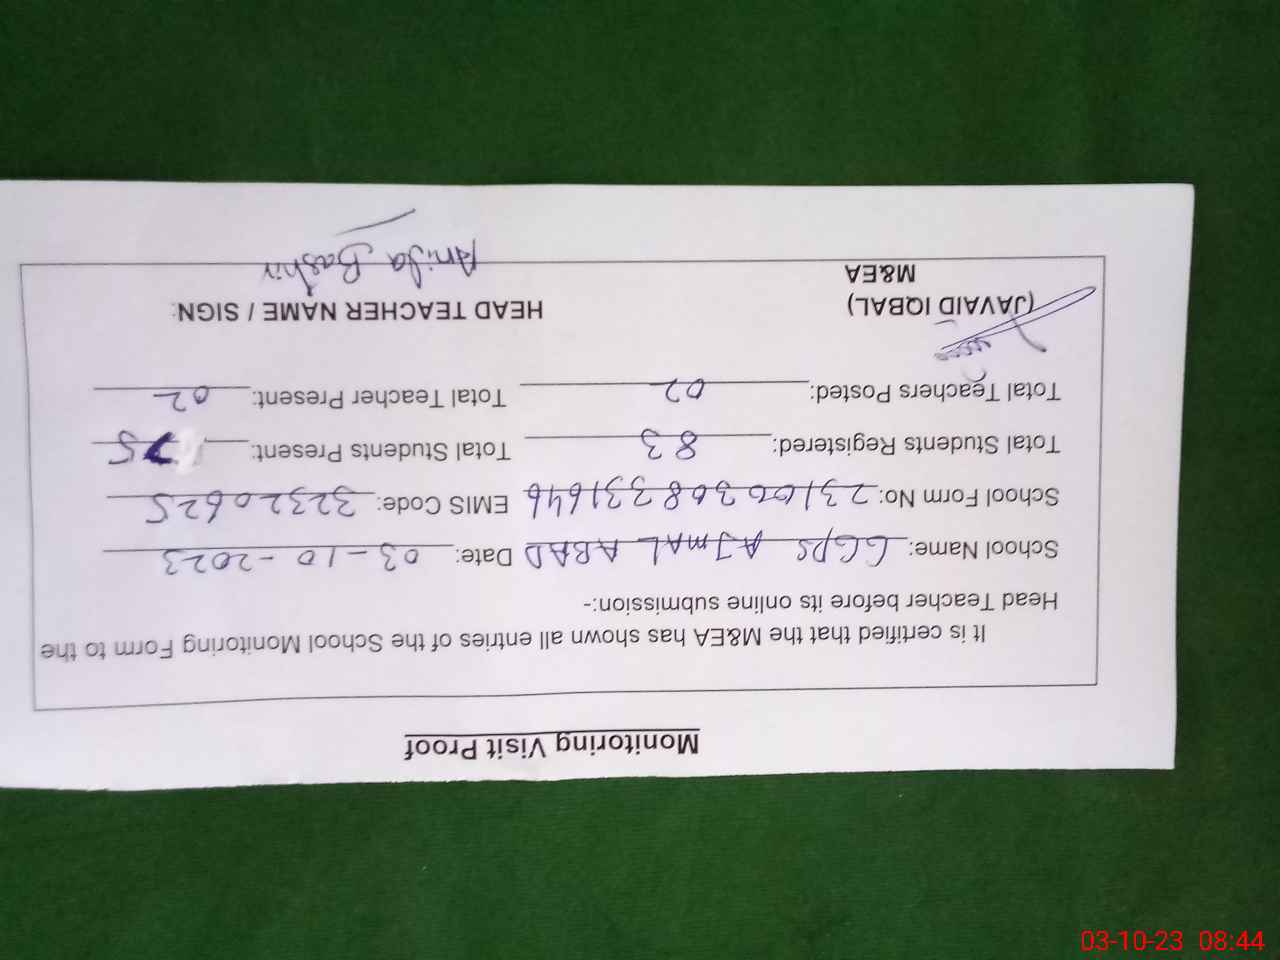 Monitoring Visit Proof
It is certified that the M&EA has shown all entries of the School Monitoring Form to the
Head Teacher before its online submission:-
School Name: GGPS AJMAL ABAD Date: 03-10-2023
School Form No: 23100308331646 EMIS Code: 32320625
Total Students Registered: 83 Total Students Present: 75
Total Teachers Posted: 02 Total Teacher Present: 02
(JAVAID IQBAL) HEAD TEACHER NAME / SIGN:
M&EA
Bashir
03-10-23 08:44